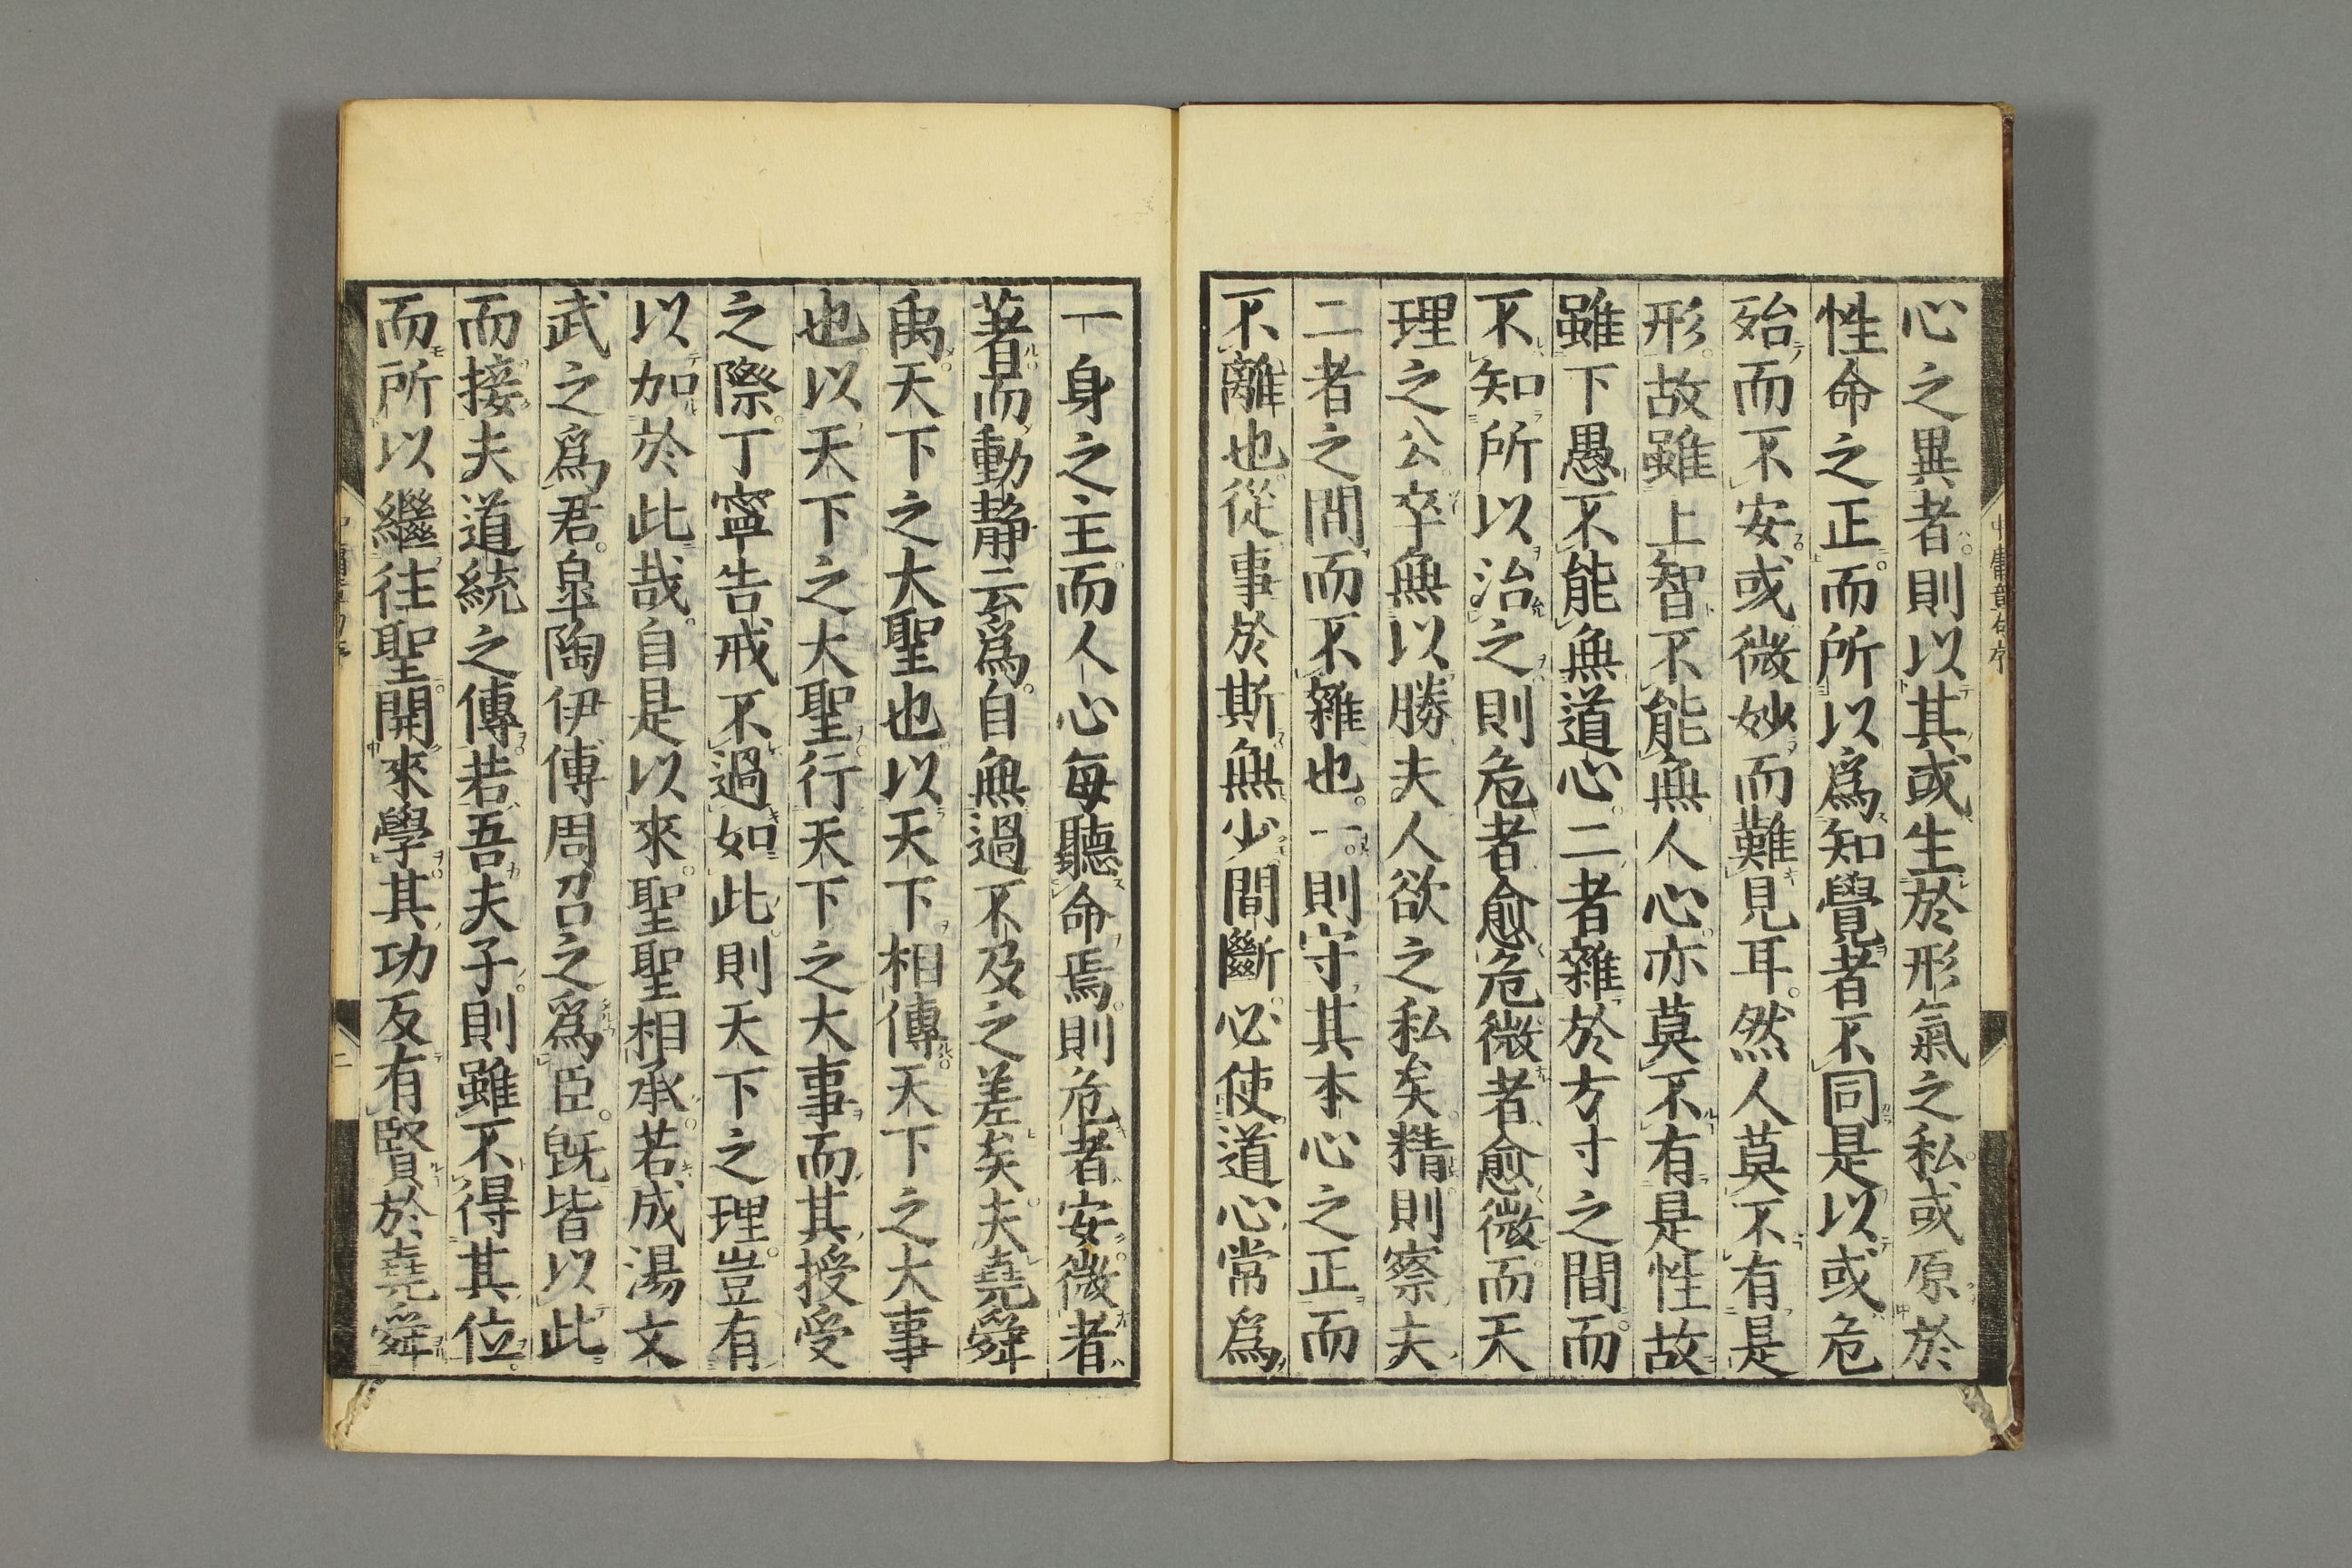 心之異者則以其或生於形氣之私或原於
性命之正而所以爲知覺者不同是以或危
殆而不安或微妙而難見耳然人莫不有是
形故雖上智不能無人心亦莫不有是性故
雖下愚不能無道心二者雜於方寸之間而
不知所以治之則危者愈危微者愈微而天
理之公卒無以勝夫人欲之私矣精則察夫
二者之間而不雜也一則守其本心之正而
不離也從事於斯無少間斷必使道心常爲
一身之主而人心每聽命焉則危者安微者
著而動静云爲自無過不及之差矣夫堯舜
禹天下之大聖也以天下相傳天下之大事
也以天下之大聖行天下之大事而其授受
之際丁寧告戒不過如此則天下之理豈有
以加於此哉自是以來聖聖相承若成湯文
武之爲君皐陶伊傅周召之爲臣旣皆以此
而接夫道統之傳若吾夫子則雖不得其位
而所以繼往聖開來學其功反有賢於堯舜
中庸章句序
二